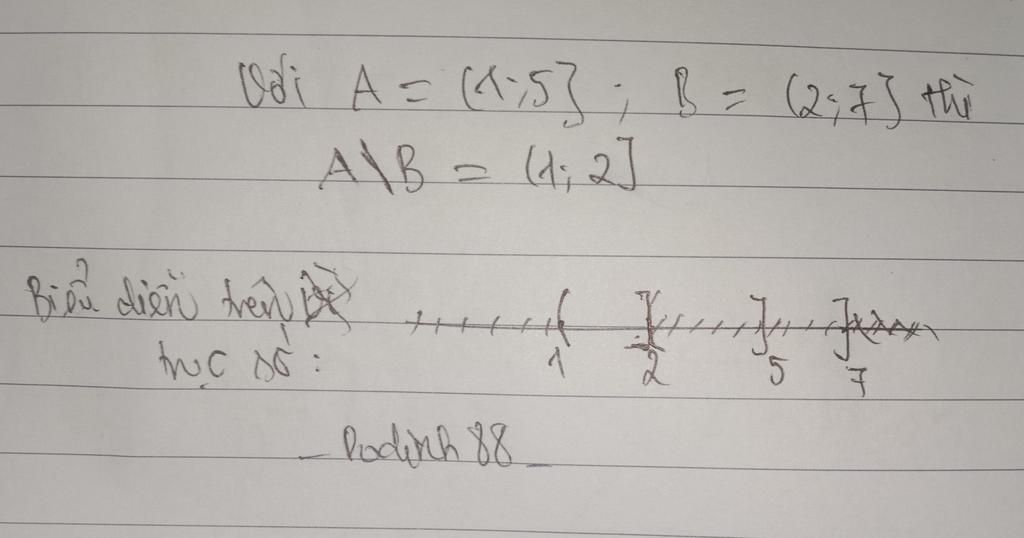 Với A = (1;5] ; B = (2;7] thì
A\B = (1;2]
Biểu diễn trên
trục số :
1 2 5 7
_ Dodinh 88 _